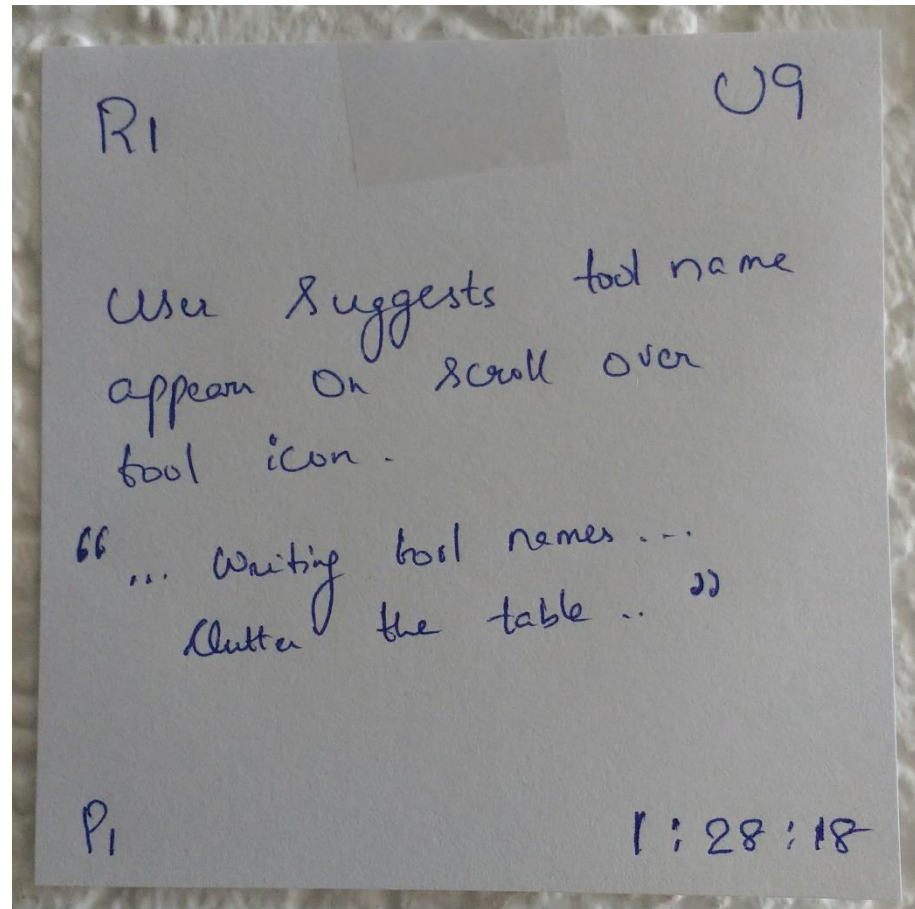 R1 U9
User suggests tool name
appears on scroll over
tool icon.
"... Writing tool names ...
Clutter the table .. "
P1 1:28:18